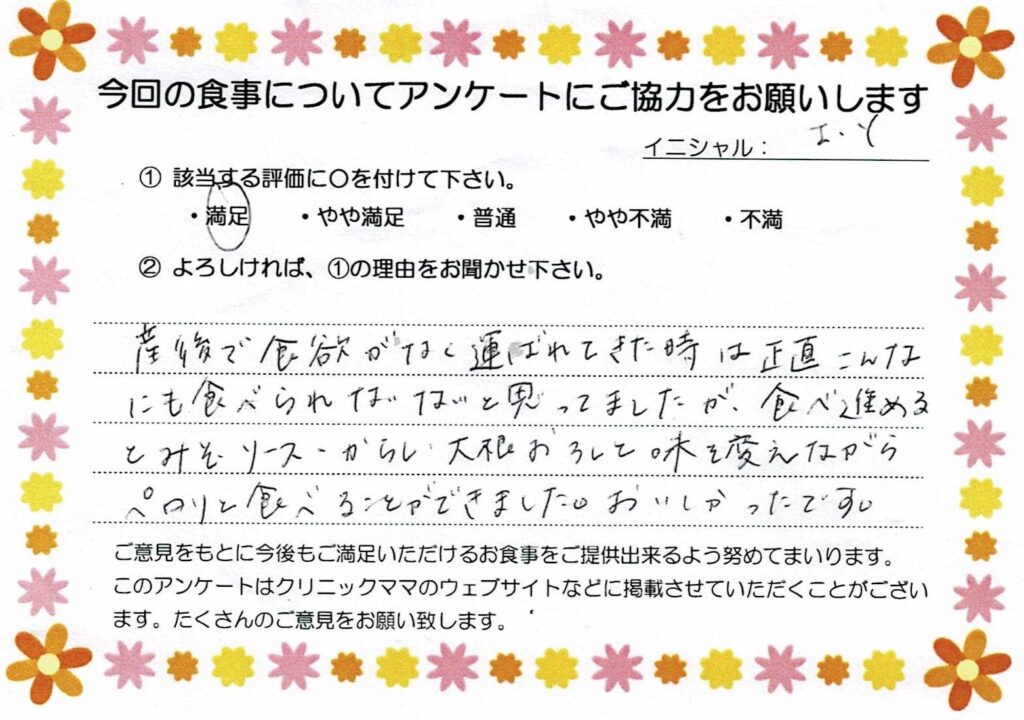 今回の食事についてアンケートにご協力をお願いします
イニシャル：
① 該当する評価に〇を付けて下さい。
・満足 ・やや満足 ・普通 ・やや不満 ・不満
② よろしければ、①の理由をお聞かせ下さい。
産後で食欲がなく運ばれてきた時は正直こんな
にも食べられないなと思ってましたが、食べ進める
とみそ・ソース・からし・大根おろしと味を変えながら
ペロリと食べることができました。おいしかったです。
ご意見をもとに今後もご満足いただけるお食事をご提供出来るよう努めてまいります。
このアンケートはクリニックママのウェブサイトなどに掲載させていただくことがござい
ます。たくさんのご意見をお願い致します。